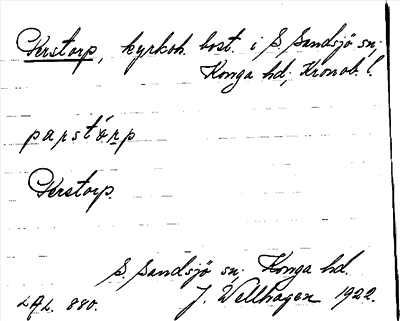 Perstorp, kyrkoh. bost. i S. Sandsjö sn;
Konga hd; Kronob. l.
parstårp
Perstorp.
S. Sandsjö sn. Konga hd.
LAL. 880. J. Wellhagen 1922.